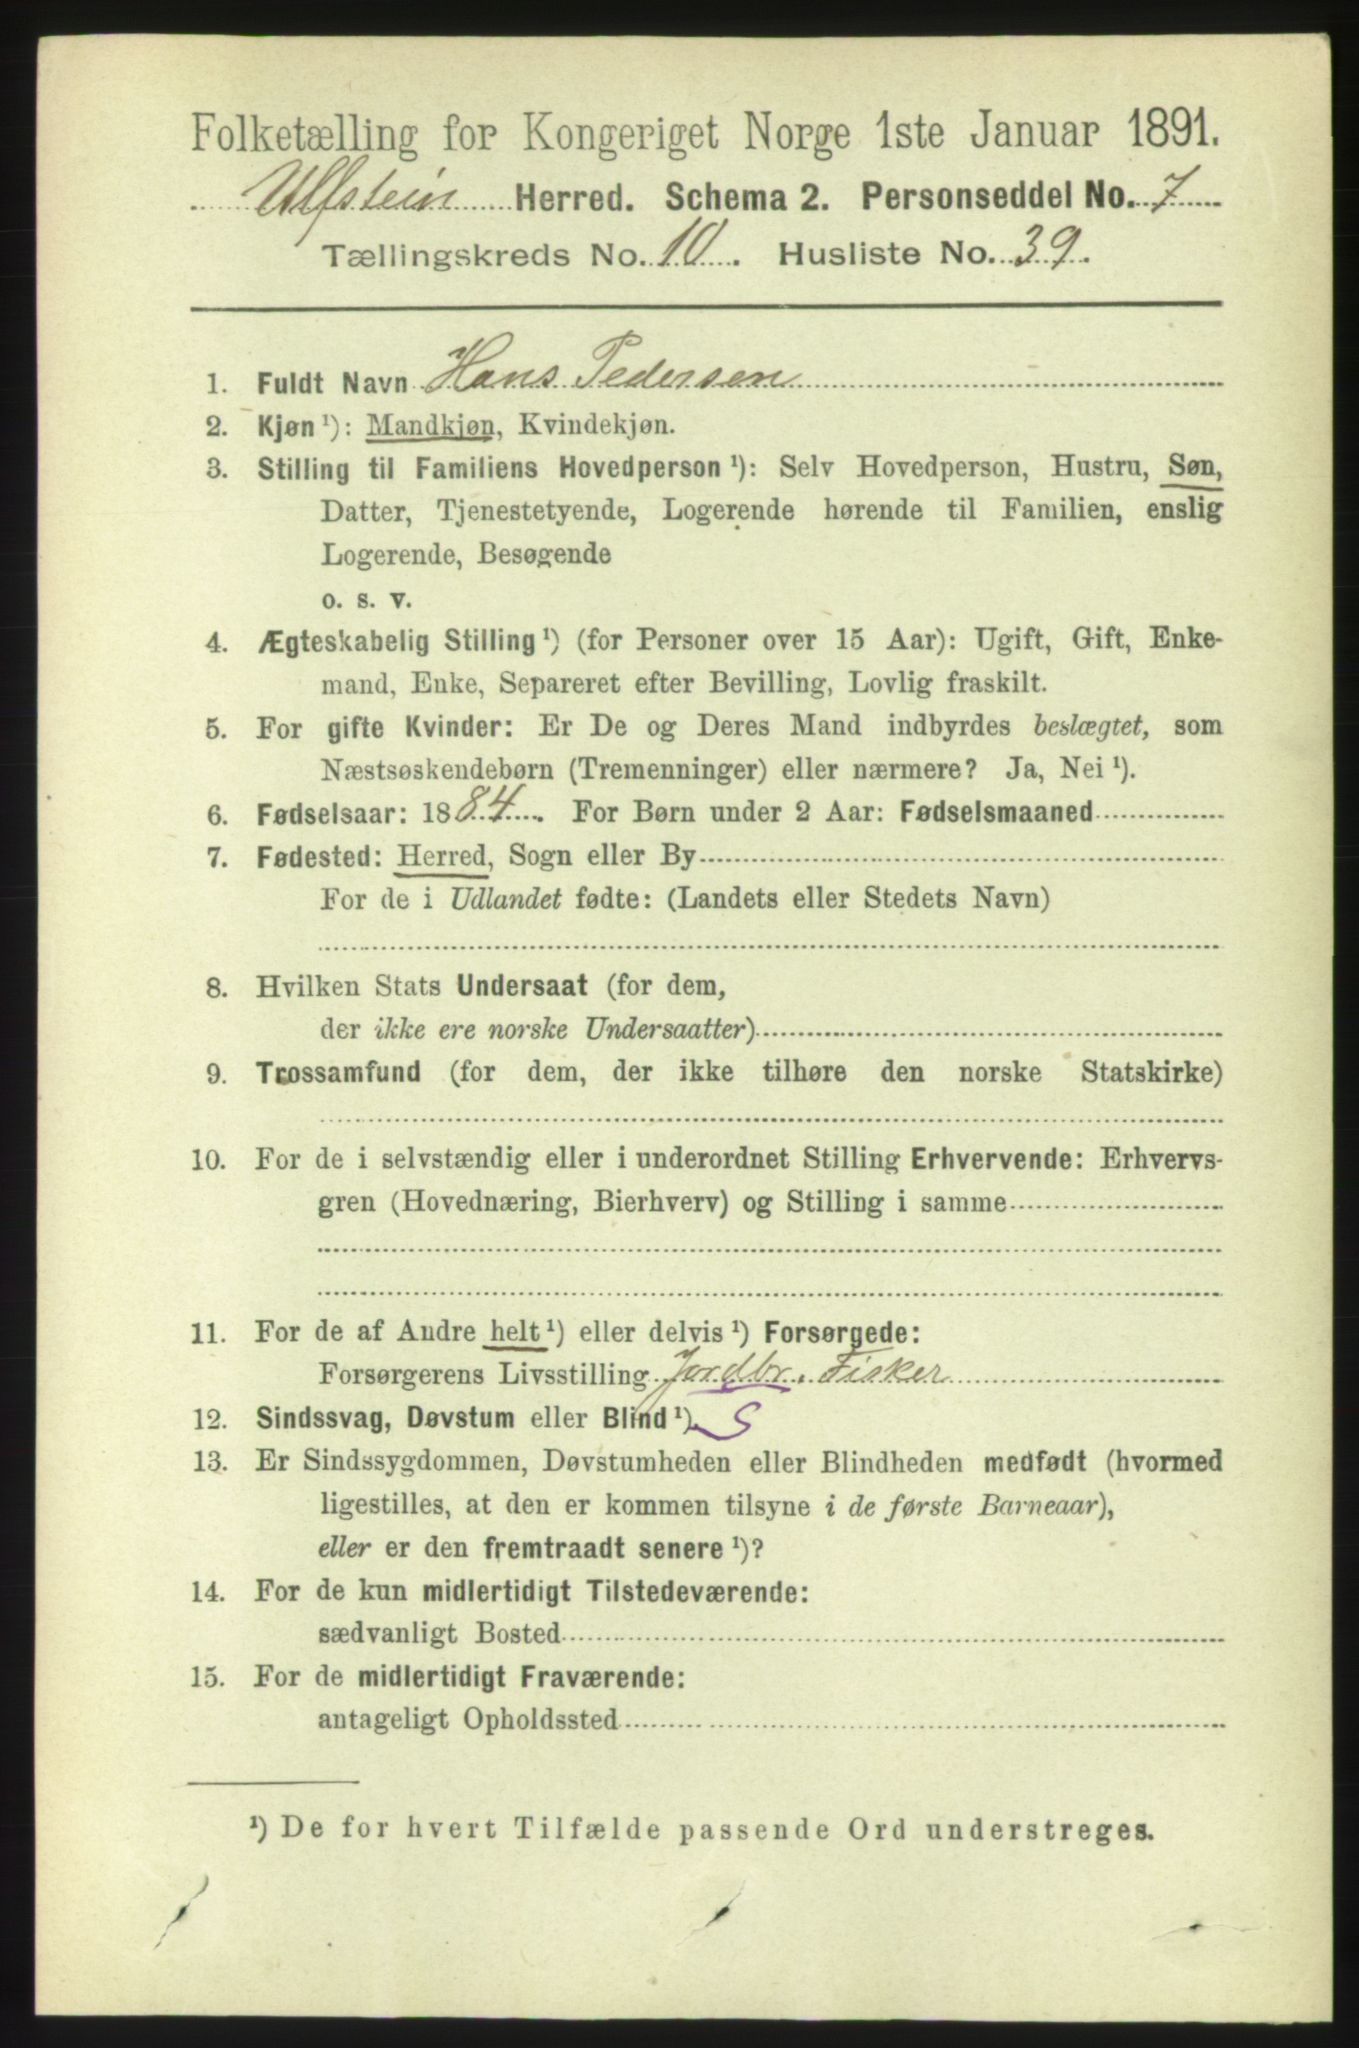 Folketælling for Kongeriget Norge 1ste Januar 1891.
Ulfstein Herred. Schema 2. Personseddel No. 7
Tællingskreds No. 10. Husliste No. 39.
1. Fuldt Navn Hans Pedersen
2. Kjøn ¹): Mandkjøn, Kvindekjøn.
3. Stilling til Familiens Hovedperson ¹): Selv Hovedperson, Hustru, Søn,
Datter, Tjenestetyende, Logerende hørende til Familien, enslig
Logerende, Besøgende
o. s. v.
4. Ægteskabelig Stilling ¹) (for Personer over 15 Aar): Ugift, Gift, Enke-
mand, Enke, Separeret efter Bevilling, Lovlig fraskilt.
5. For gifte Kvinder: Er De og Deres Mand indbyrdes beslægtet, som
Næstsøskendebørn (Tremenninger) eller nærmere? Ja, Nei ¹).
6. Fødselsaar: 1884. For Børn under 2 Aar: Fødselsmaaned
7. Fødested: Herred, Sogn eller By
For de i Udlandet fødte: (Landets eller Stedets Navn)
8. Hvilken Stats Undersaat (for dem,
der ikke ere norske Undersaatter)
9. Trossamfund (for dem, der ikke tilhøre den norske Statskirke)
10. For de i selvstændig eller i underordnet Stilling Erhvervende: Erhvervs-
gren (Hovednæring, Bierhverv) og Stilling i samme
11. For de af Andre helt ¹) eller delvis ¹) Forsørgede:
Forsørgerens Livsstilling Jordbr. Fisker
12. Sindssvag, Døvstum eller Blind ¹). S
13. Er Sindssygdommen, Døvstumheden eller Blindheden medfødt (hvormed
ligestilles, at den er kommen tilsyne i de første Barneaar),
eller er den fremtraadt senere ¹)?
14. For de kun midlertidigt Tilstedeværende:
sædvanligt Bosted
15. For de midlertidigt Fraværende:
antageligt Opholdssted
¹) De for hvert Tilfælde passende Ord understreges.